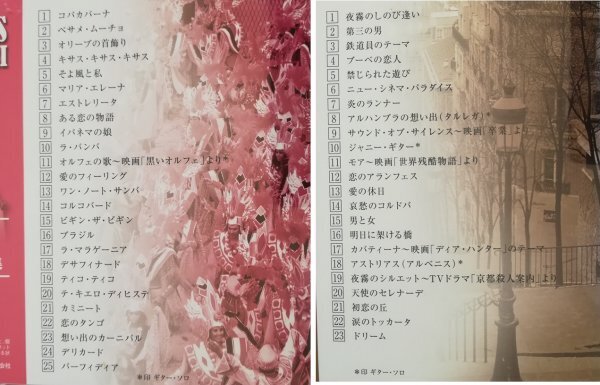 1 コパカバーナ
2 ベサメ・ムーチョ
3 オリーブの首飾り
4 キサス・キサス・キサス
5 そよ風と私
6 マリア・エレーナ
7 エストレリータ
8 ある恋の物語
9 イパネマの娘
10 ラ・バンバ
11 オルフェの歌〜映画「黒いオルフェ」より*
12 愛のフィーリング
13 ワン・ノート・サンバ
14 コルコバード
15 ビギン・ザ・ビギン
16 ブラジル
17 ラ・マラゲーニア
18 デサフィナード
19 ティコ・ティコ
20 テ・キエロ・ディヒステ
21 カミニート
22 恋のタンゴ
23 想い出のカーニバル
24 デリカード
25 パーフィディア
*印 ギター・ソロ
1 夜霧のしのび逢い
2 第三の男
3 鉄道員のテーマ
4 ブーベの恋人
5 禁じられた遊び
6 ニュー・シネマ・パラダイス
7 炎のランナー
8 アルハンブラの想い出(タルレガ)*
9 サウンド・オブ・サイレンス〜映画「卒業」より
10 ジャニー・ギター*
11 モア〜映画「世界残酷物語」より
12 恋のアランフェス
13 愛の休日
14 哀愁のコルドバ
15 男と女
16 明日に架ける橋
17 カバティーナ〜映画「ディア・ハンター」のテーマ
18 アストリアス(アルベニス)*
19 夜霧のシルエット〜TVドラマ「京都殺人案内」より
20 天使のセレナーデ
21 初恋の丘
22 涙のトッカータ
23 ドリーム
*印 ギター・ソロ